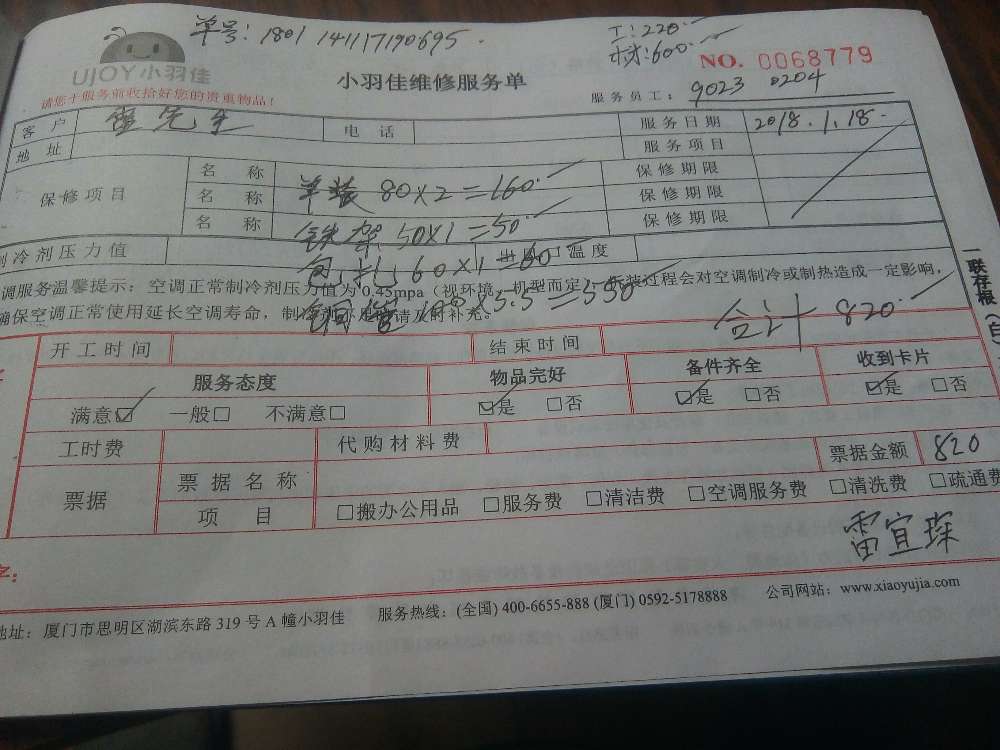 单号: 1801 14117190695.
工: 220.
材: 600.
UJOY小羽佳
NO. 0068779
小羽佳维修服务单
请您于服务前收拾好您的贵重物品!
服务员工: 9023 0204
客 户 雷先生 电 话 服务日期 2018.1.18.
地 址 服务项目
保修项目 名 称 单装 80×2=160. 保修期限
名 称 保修期限
名 称 铁架 50×1=50 保修期限
制冷剂压力值 60×1=60 温度
调服务温馨提示: 空调正常制冷剂压力值为0.45mpa (视环境、机型而定), 拆装过程会对空调制冷或制热造成一定影响,
确保空调正常使用延长空调寿命, 制冷剂不足时请及时补充。
铜管 100×5.5=550 合计 820.
一联存根(白)
开工时间 结束时间
服务态度 物品完好 备件齐全 收到卡片
满意☑ 一般□ 不满意□ ☑是 □否 ☑是 □否 ☑是 □否
工时费 代购材料费
票据 票据名称 票据金额 820
项 目 □搬办公用品 □服务费 □清洁费 □空调服务费 □清洗费 □疏通费
雷宜琛
字:
地址: 厦门市思明区湖滨东路 319 号 A 幢小羽佳 服务热线: (全国) 400-6655-888 (厦门) 0592-5178888 公司网站: www.xiaoyujia.com